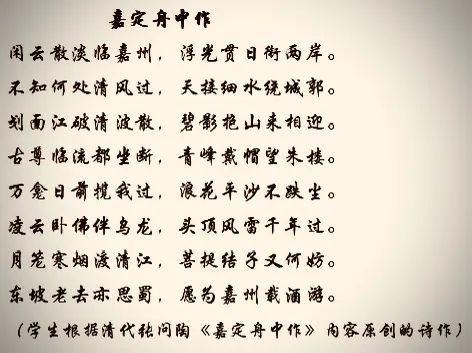 嘉定舟中作
闲云散淡临嘉州，浮光贯日衔两岸。
不知何处清风过，天接细水绕城郭。
划面江破清波散，碧影拖山来相迎。
古尊临流都坐断，青峰戴帽望朱楼。
万龛日前揽我过，浪花平沙不跌坐。
凌云卧佛伴乌龙，头顶风雷千年过。
月笼寒烟渡清江，菩提结子又何妨。
东坡老去亦思蜀，愿为嘉州载酒游。
（学生根据清代张问陶《嘉定舟中作》内容原创的诗作）